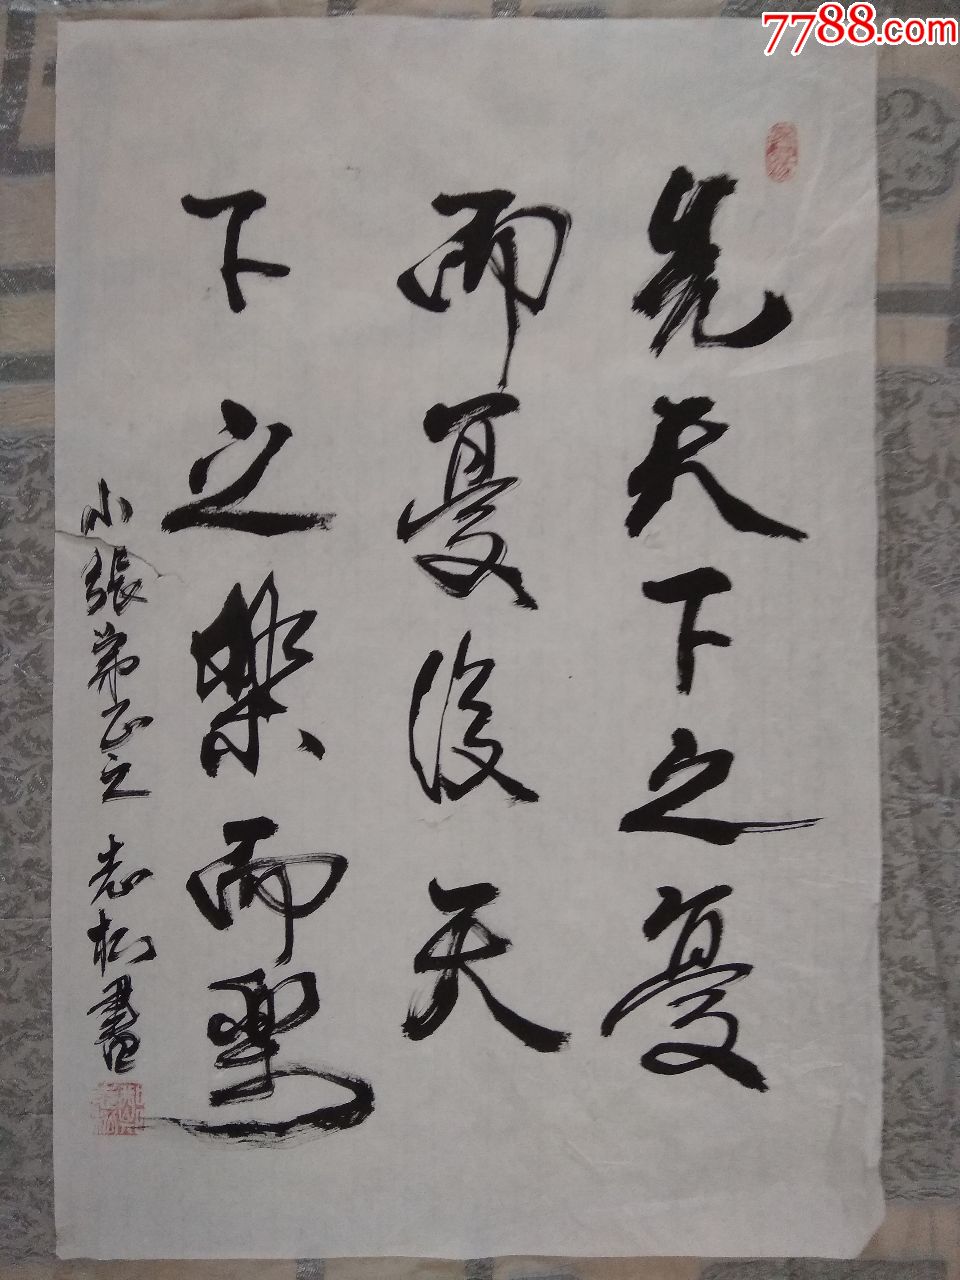 7788.com
先天下之憂
而憂後天
下之樂而樂
小張弟正之 志松書